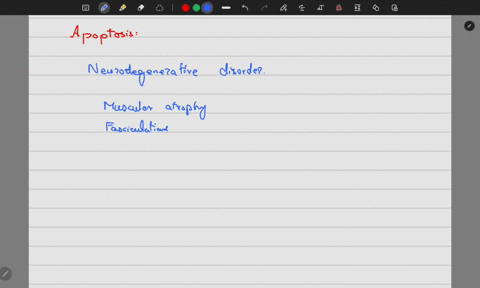 Apoptosis:
Neurodegenerative disorder.
Muscular atrophy
Fasciculations